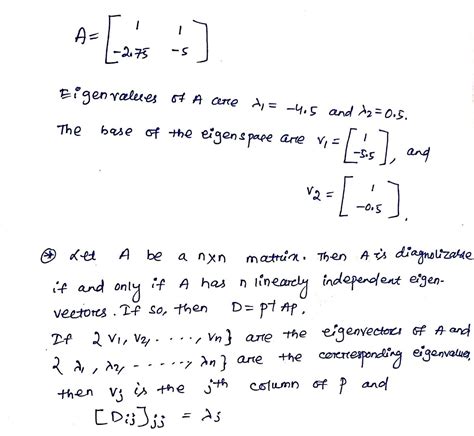 A = [ 1 1
-2.75 -5 ]
Eigenvalues of A are λ₁ = -4.5 and λ₂ = 0.5.
The base of the eigenspace are v₁ = [ 1
-5.5 ], and
v₂ = [ 1
-0.5 ].
⊛ Let A be a n×n matrix. Then A is diagnolizable
if and only if A has n linearly independent eigen-
vectors. If so, then D = P⁻¹ AP.
If { v₁, v₂, . . . ., vₙ} are the eigenvectors of A and
{ λ₁, λ₂, - - - - -, λₙ} are the corresponding eigenvalues,
then vj is the jth column of P and
[Dij]jj = λj